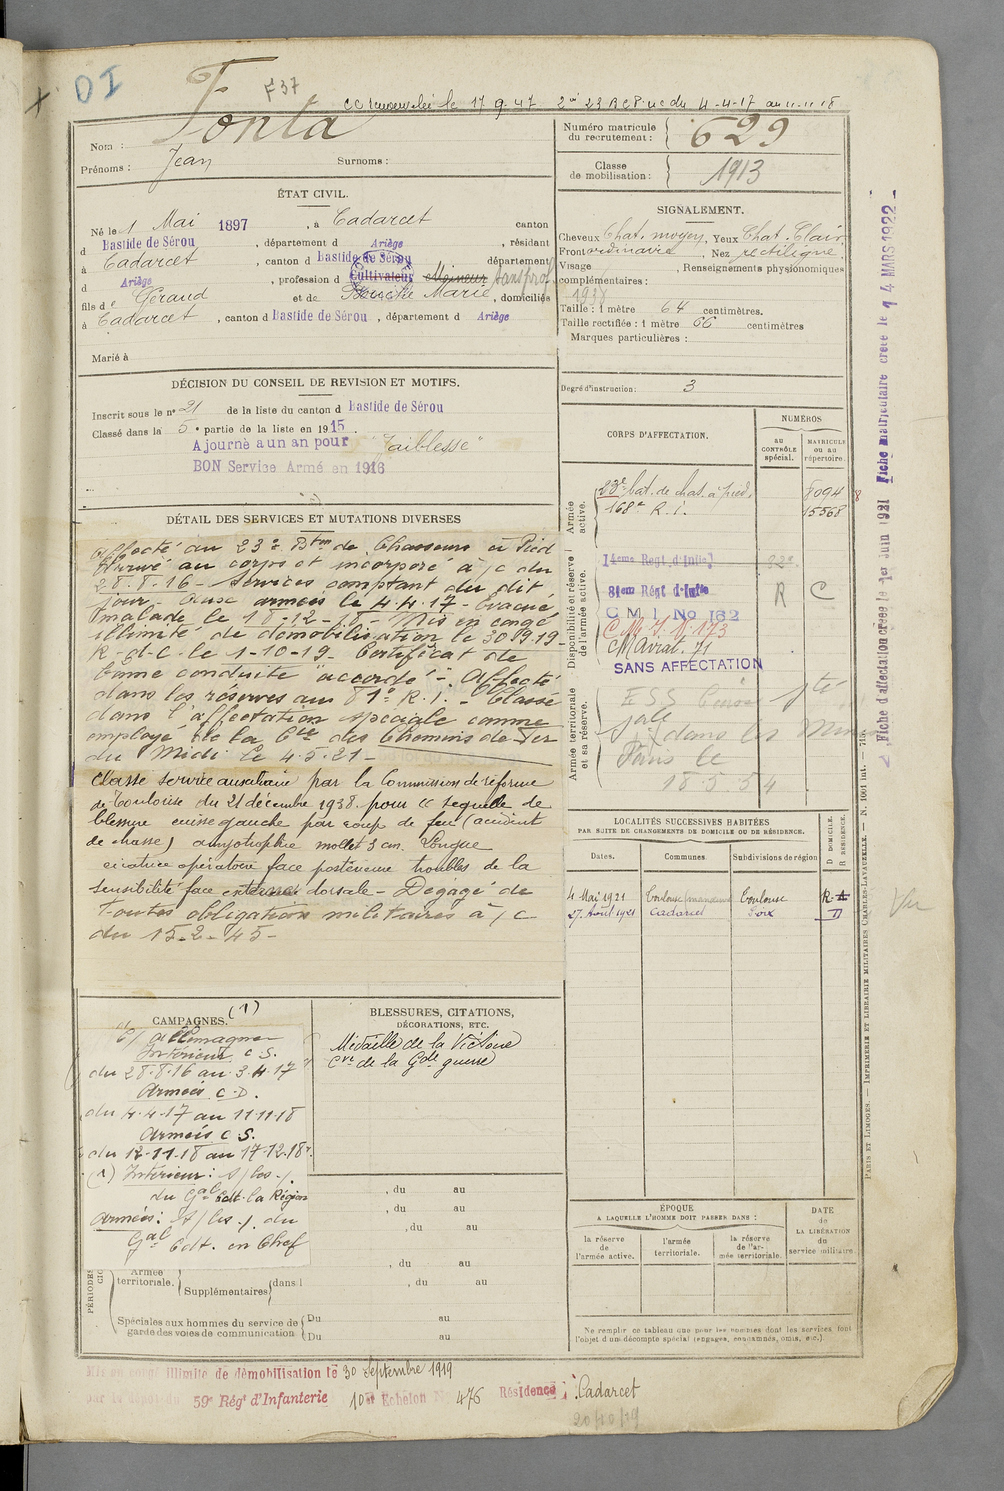 OI
F37
CC renouvelée le 17.9.47 2eme 23 BCP uc du 4-4-17 au 11.11.18
Nom : Fonta
Prénoms : Jean Surnoms :
Numéro matricule du recrutement : 629
Classe de mobilisation : 1913
ÉTAT CIVIL.
Né le 1 Mai 1897, à Cadarcet canton
d Bastide de Sérou, département d Ariège, résidant
à Cadarcet, canton d Bastide de Sérou département
d Ariège, profession d Cultivateur Mineur sans prof
fils de Géraud et de Marie, domiciliés
à Cadarcet, canton d Bastide de Sérou, département d Ariège
Marié à
SIGNALEMENT.
Cheveux Chat. moyen, Yeux Chat. Clair
Front ordinaire, Nez rectiligne
Visage , Renseignements physionomiques
complémentaires :
Taille : 1 mètre 64 centimètres.
Taille rectifiée : 1 mètre 66 centimètres
Marques particulières :
Degré d'instruction : 3
DÉCISION DU CONSEIL DE REVISION ET MOTIFS.
Inscrit sous le n° 21 de la liste du canton d Bastide de Sérou
Classé dans la 5e partie de la liste en 1915.
Ajourné à un an pour "Faiblesse"
BON Service Armé en 1916
DÉTAIL DES SERVICES ET MUTATIONS DIVERSES
Affecté au 23e Bton de Chasseurs à Pied
Arrivé au corps et incorporé à/c du
28-8-16 - Services comptant du dit
jour - aux armées le 4-4-17 - Evacué
malade le 18-12-18 - Mis en congé
illimité de démobilisation le 30.9.19
R-d-C. le 1-10-19. Certificat de
bonne conduite "accordé" -. Affecté
dans les réserves au 81e R.I. - Classé
dans l'affectation spéciale comme
employé de la Cie des Chemins de Fer
du Midi le 4-5-21 -
Classé service auxiliaire par la Commission de réforme
de Toulouse du 21 décembre 1938 pour "sequelle de
blessure cuisse gauche par coup de feu (accident
de chasse) amyotrophie mollet 3 cm. Longue
cicatrice opératoire face postérieure troubles de la
sensibilité face externe dorsale - Dégagé de
toutes obligations militaires à/c
du 15-2-45 -
CORPS D'AFFECTATION.
NUMÉROS
AU CONTRÔLE spécial.
MATRICULE ou au répertoire.
Armée active.
23e bat. de chas. à pied. 8094
168e R.I. 15568
Disponibilité et réserve de l'armée active.
14eme Regt d'Inftie
81eme Régt d'Inftie R C
C M I No 162
C.M.I. N° 173
CM Aviat. 71
SANS AFFECTATION
Armée territoriale et sa réserve.
dans les Mines
Paris le
18-5-54
LOCALITÉS SUCCESSIVES HABITÉES
PAR SUITE DE CHANGEMENTS DE DOMICILE OU DE RÉSIDENCE.
Dates. Communes. Subdivisions de région D DOMICILE. R RÉSIDENCE.
4 Mai 1921 Toulouse Toulouse R
27 Août 1921 Cadarcet Foix D
CAMPAGNES. (1)
C/ Allemagne
Intérieur C S.
du 28-8-16 au 3-4-17
Armées C.D.
du 4-4-17 au 11-11-18
Armées C S.
du 12-11-18 au 17-12-18
(1) Intérieur :
du Gal Cdt. la Région
Armées : du
Gal Cdt. en Chef
BLESSURES, CITATIONS,
DÉCORATIONS, ETC.
Médaille de la Victoire
Cve de la Gde guerre
, du au
, du au
, du au
, du au
PÉRIODES
Armée territoriale. Supplémentaires dans l , du au
Spéciales aux hommes du service de garde des voies de communication Du au
Du au
ÉPOQUE
A LAQUELLE L'HOMME DOIT PASSER DANS :
la réserve de l'armée active. l'armée territoriale. la réserve de l'armée territoriale.
DATE DE LA LIBÉRATION du service militaire.
Ne remplir ce tableau que pour les hommes dont les services font
l'objet d'un décompte spécial (engagés, condamnés, omis, etc.)
Mis en congé illimité de démobilisation le 30 septembre 1919
par le dépôt du 59e Régt d'Infanterie 10e Echelon N° 476 Résidence : Cadarcet
20/10/19
Fiche d'affectation créée le 1er Juin 1921 Fiche matriculaire créée le 14 MARS 1922
PARIS ET LIMOGES. — IMPRIMERIE ET LIBRAIRIE MILITAIRES CHARLES-LAVAUZELLE. — N. 1001 int. — 715.
Vu